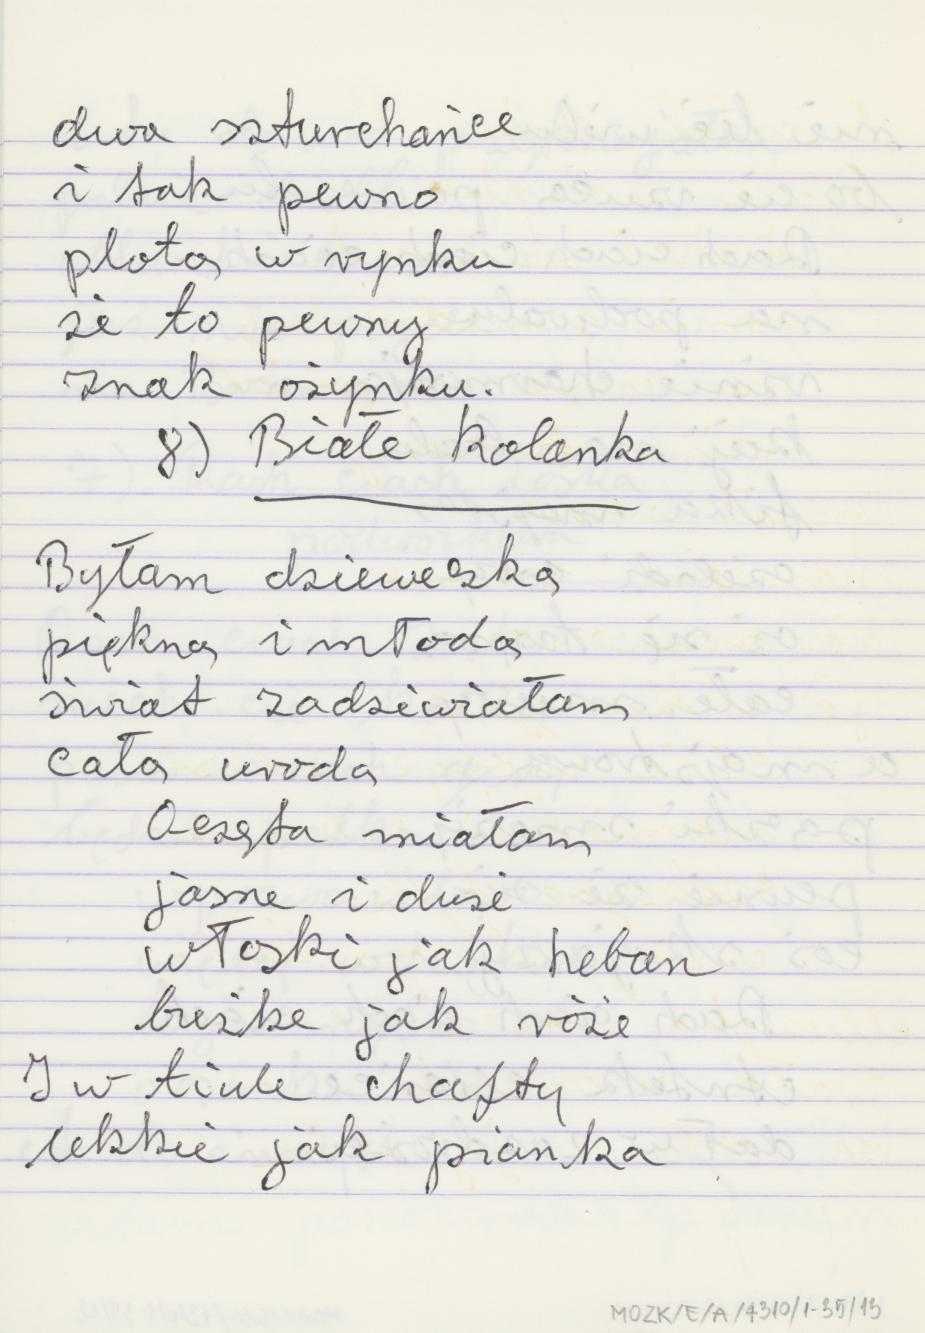 dwa szturchańce
i tak pewno
plotą w rynku
że to pewny
znak ożynku.
8) Białe Kolanka
Byłam dzieweczką
piękną i młodą
świat zadziwiałam
całą urodą
Oczęta miałam
jasne i duże
włoski jak heban
buźkę jak róże
I w tiule chafty
lekkie jak pianka
MOZK/E/A/4310/1-35/13